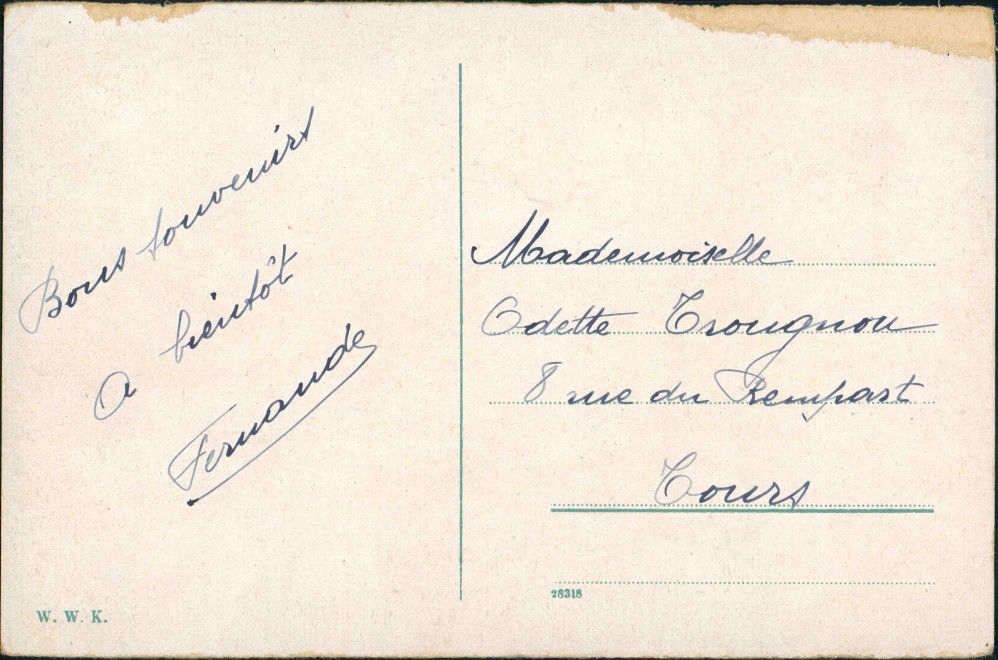 Bons souvenirs
a bientôt
Fernande
W. W. K.
Mademoiselle
Odette Trougnou
8 rue du Rempart
Tours
28318